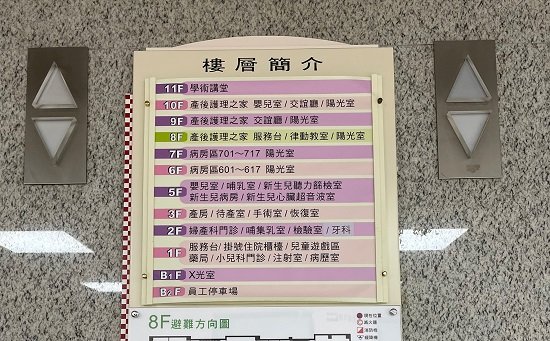 樓層簡介
11F 學術講堂
10F 產後護理之家 嬰兒室/交誼廳/陽光室
9F 產後護理之家 交誼廳/陽光室
8F 產後護理之家 服務台/律動教室/陽光室
7F 病房區701～717 陽光室
6F 病房區601～617 陽光室
5F 嬰兒室/哺乳室/新生兒聽力篩檢室
新生兒病房/新生兒心臟超音波室
3F 產房/待產室/手術室/恢復室
2F 婦產科門診/哺集乳室/檢驗室/牙科
1F 服務台/掛號住院櫃檯/兒童遊戲區
藥局/小兒科門診/注射室/病歷室
B1F X光室
B2F 員工停車場
8F避難方向圖
現在位置
滅火器
消防栓
緩降機